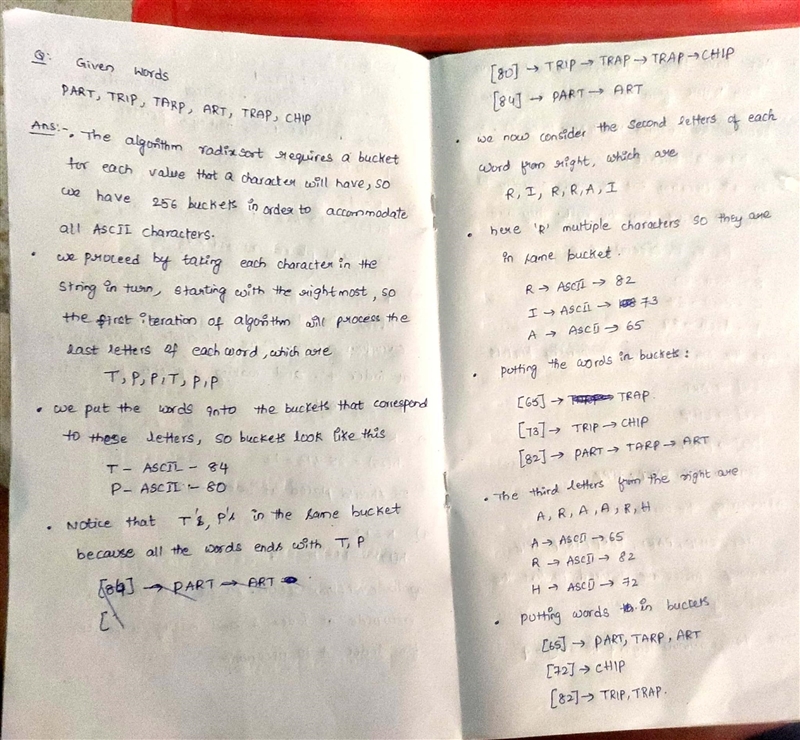 Q: Given words
PART, TRIP, TARP, ART, TRAP, CHIP
Ans:-. The algorithm radixsort requires a bucket
for each value that a character will have, so
we have 256 buckets in order to accommodate
all ASCII characters.
• we proceed by taking each character in the
string in turn, starting with the rightmost, so
the first iteration of algorithm will process the
last letters of each word, which are
T, P, P, T, P, P
• we put the words into the buckets that correspond
to these letters, so buckets look like this
T - ASCII - 84
P - ASCII - 80
• Notice that T's, P's in the same bucket
because all the words ends with T, P
[84] → PART → ART
[
[80] → TRIP → TRAP → TRAP → CHIP
[84] → PART → ART
• we now consider the second letters of each
word from right, which are
R, I, R, R, A, I
• here 'R' multiple characters so they are
in same bucket.
R → ASCII → 82
I → ASCII → 73
A → ASCII → 65
• putting the words in buckets:
[65] → TRAP.
[73] → TRIP → CHIP
[82] → PART → TARP → ART
• The third letters from the right are
A, R, A, A, R, H
A → ASCII → 65
R → ASCII → 82
H → ASCII → 72
• putting words in buckets
[65] → PART, TARP, ART
[72] → CHIP
[82] → TRIP, TRAP.